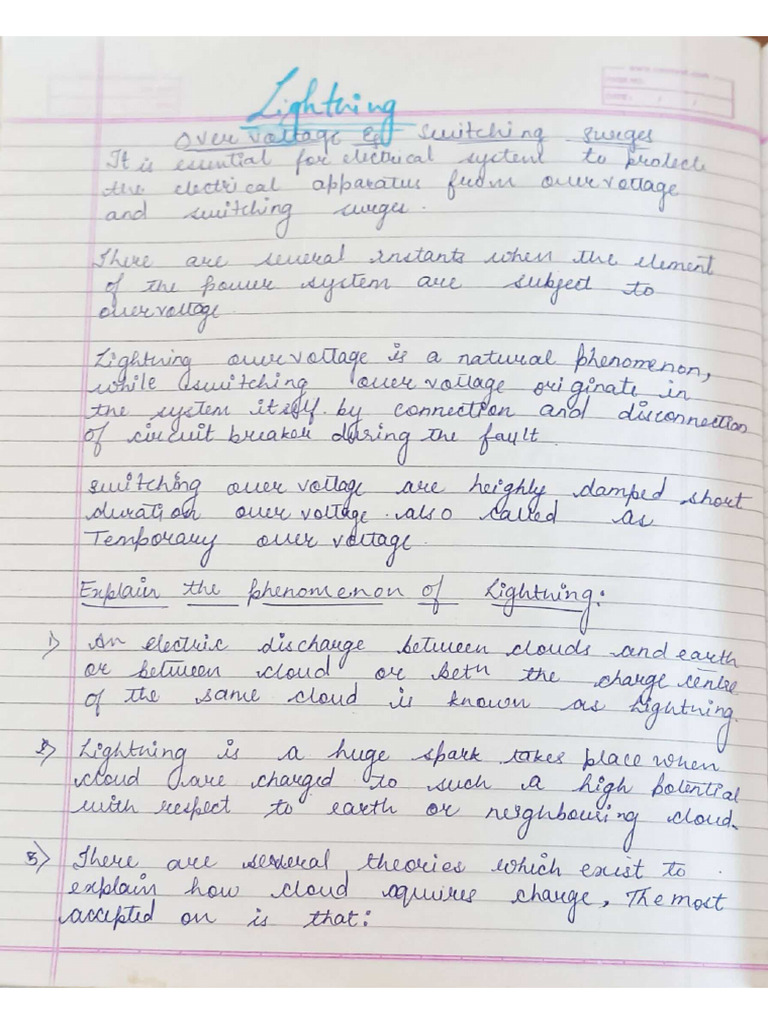 Lightning
Over voltage & switching surges
It is essential for electrical system to protect
the electrical apparatus from over voltage
and switching surges.
There are several instants when the element
of the power system are subject to
over voltage.
Lightning over voltage is a natural phenomenon,
while switching over voltage originate in
the system itself by connection and disconnection
of circuit breaker during the fault.
switching over voltage are heighly damped short
duration over voltage also called as
Temporary over voltage.
Explain the phenomenon of Lightning:
1) An electric discharge between clouds and earth
or between cloud or betn the charge centre
of the same cloud is known as lightning.
2) Lightning is a huge spark takes place when
cloud are charged to such a high potential
with respect to earth or neighbouring cloud.
3) There are several theories which exist to
explain how cloud aquires charge, The most
accepted on is that: